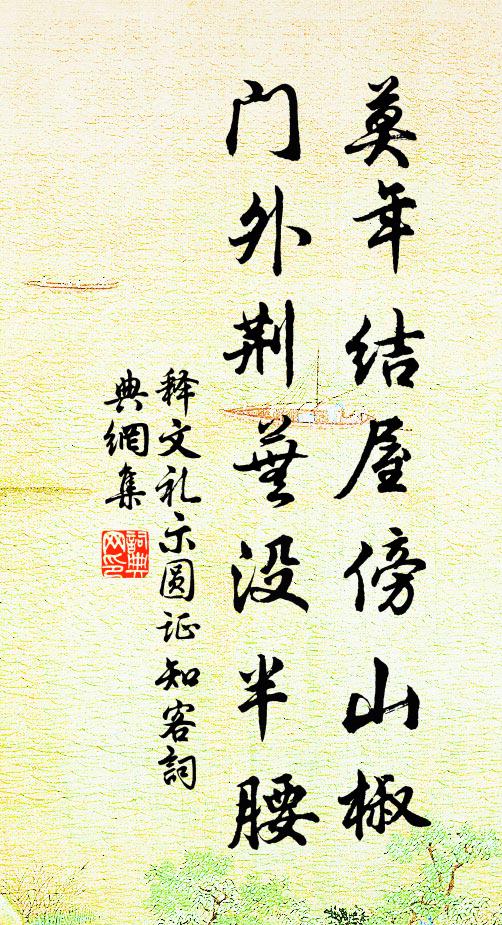 莫年结屋傍山椒
门外荆芜没半腰
释文礼示圆证知客詞
典網集
詞典网印